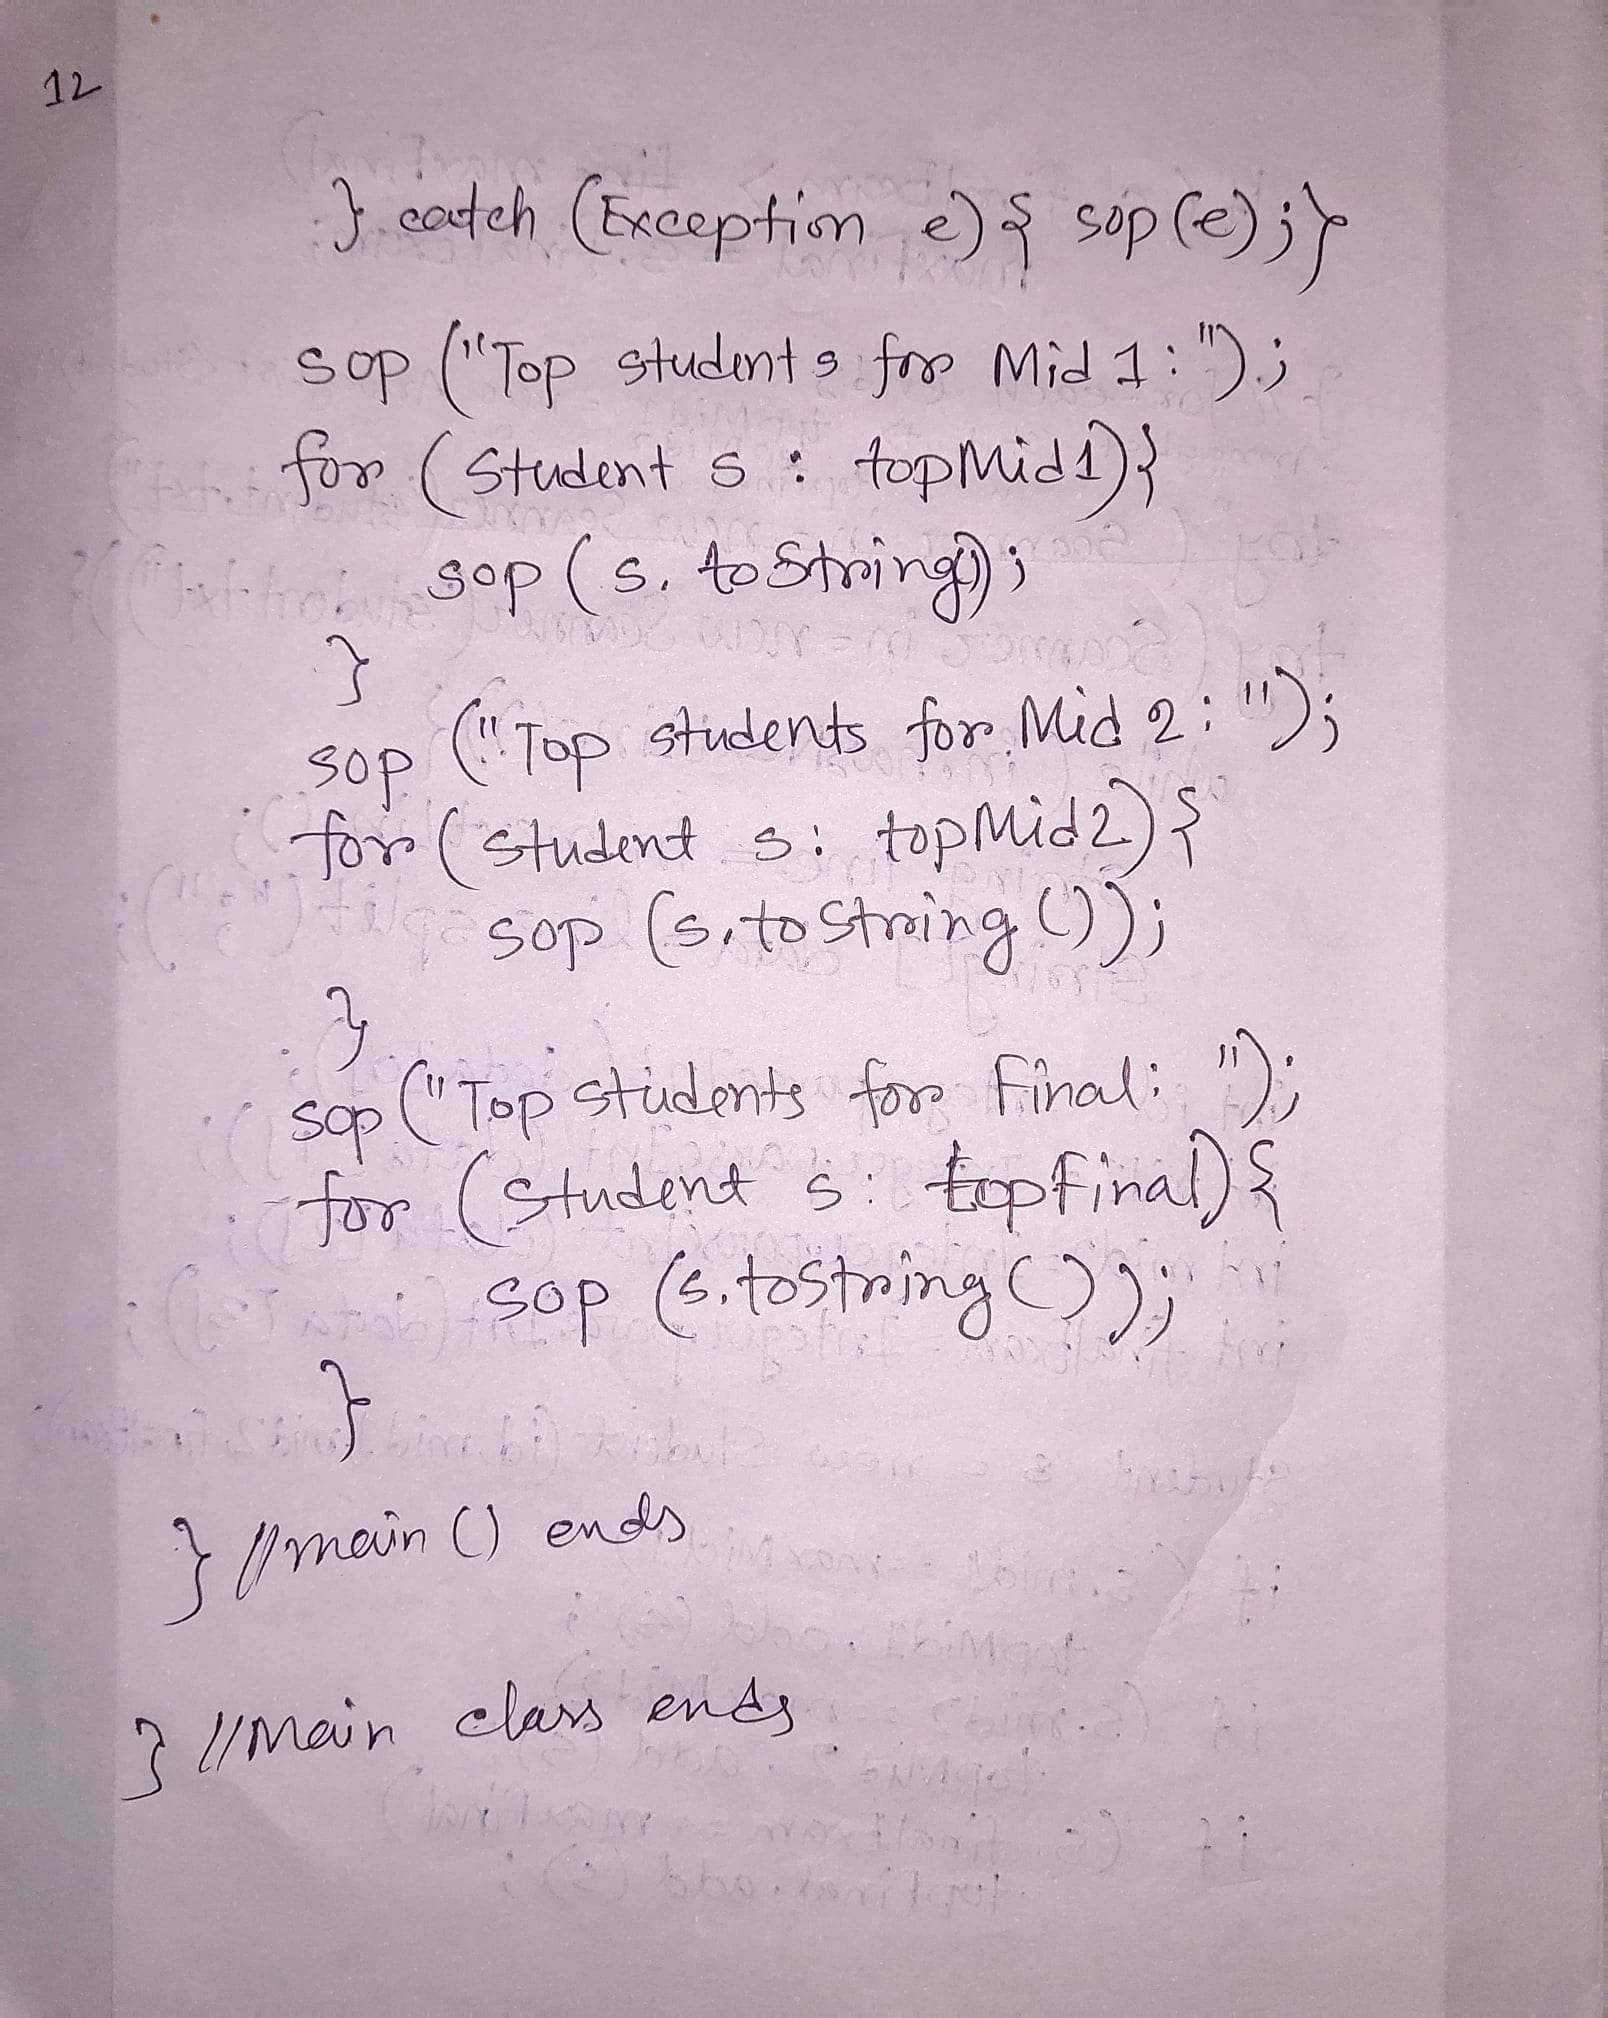 12
} catch (Exception e) { sop(e);}
sop ("Top students for Mid 1:");
for (Student s : topMid1){
sop (s. toString());
}
sop ("Top students for Mid 2: ");
for (student s: topMid2) {
sop (s.toString ());
}
sop ("Top students for Final: ");
for (student s: topFinal) {
sop (s.toString ());
}
} //main () ends
} //Main class ends